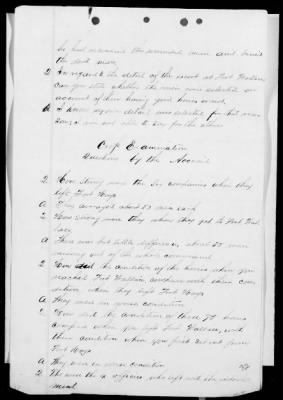 he had recovered the wounded men and buried
the dead men.
Q In regard to the detail of the escort at Fort Wallace
can you state whether the men were selected on
account of their having good horses or not.
A I know my own detail was selected for that reason
I am not able to say for the others
Cross Examination
Questions by the Accused
Q How strong were the six companies when they
left Fort Hays
A They averaged about 53 men each
Q How strong were they when they got to Fort Wal-
lace
A There was but little difference, about 35 men
missing out of the whole command
Q How did the condition of the horses when you
reached Fort Wallace compare with their con-
dition when they left Fort Hays
A They were in worse condition
Q How did the condition of those 75 horses
compare when you left Fort Wallace, with
their condition when you first set out from
Fort Hays
A They were in worse condition
Q Who were the officers who left with the detach-
ment